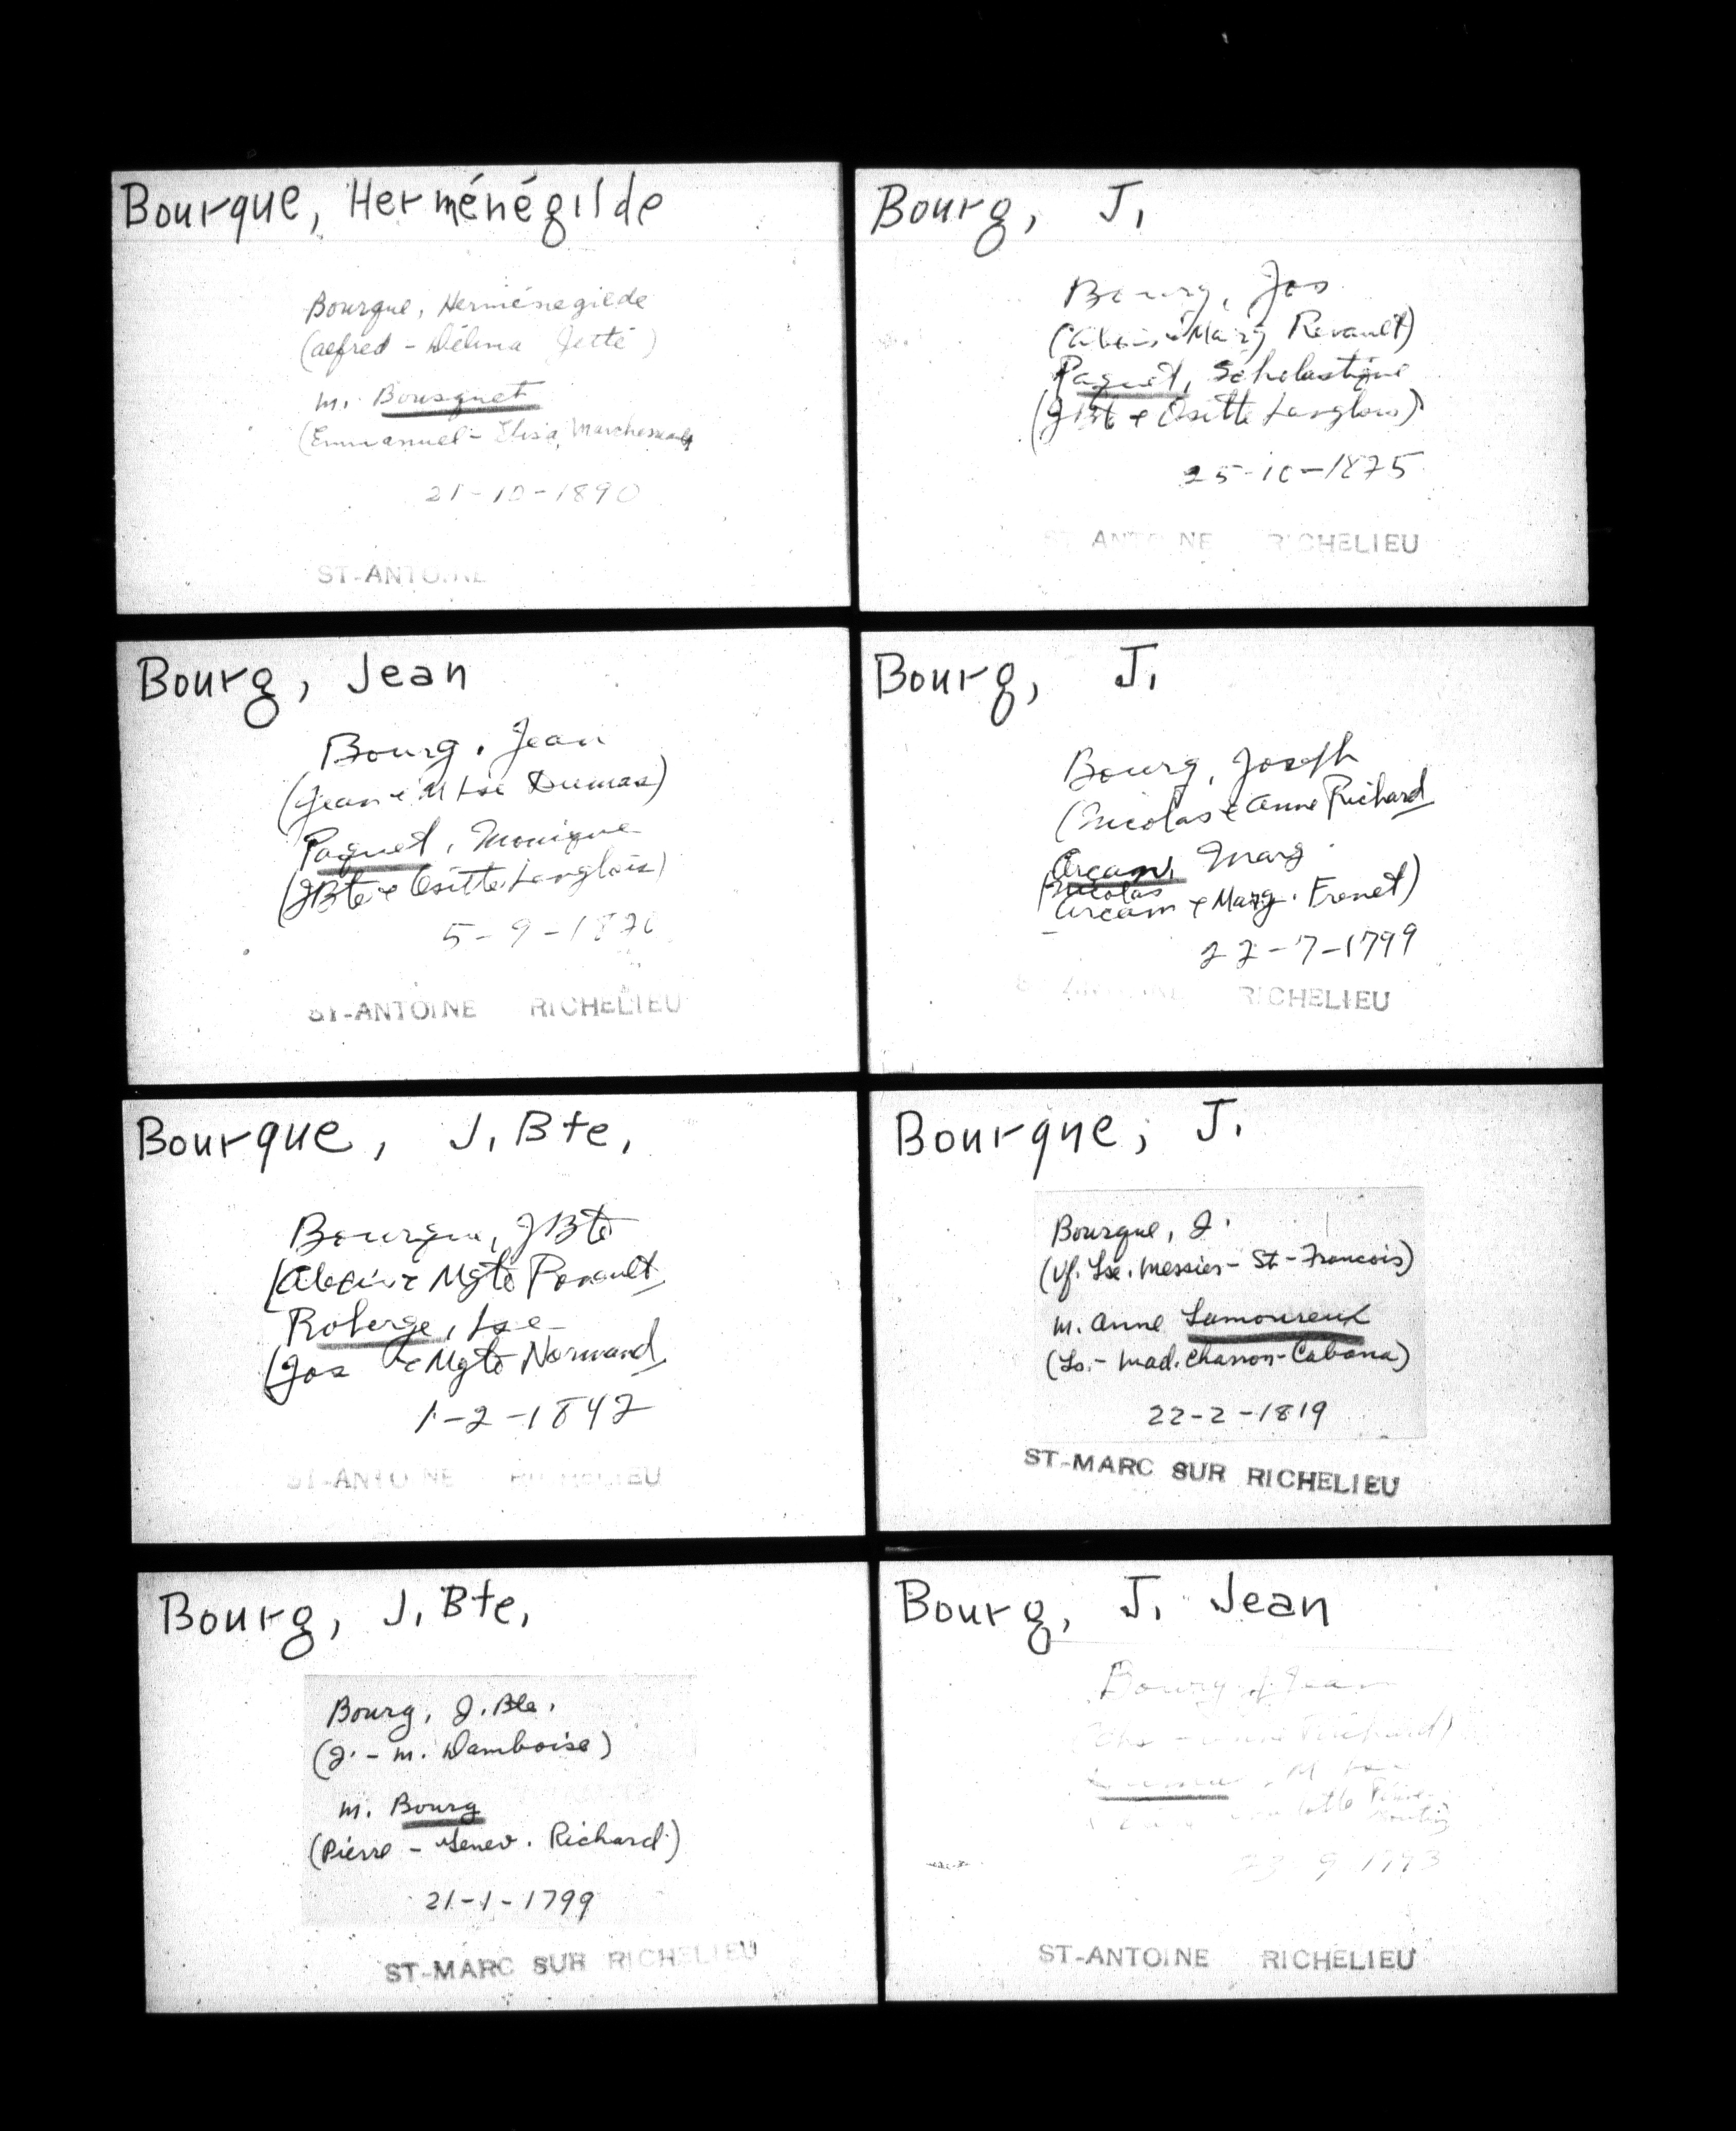 Bourque, Herménégilde
Bourque, Herménegilde
(Alfred - Délima Jetté)
m. Bousquet
(Emmanuel - Elisa Marchesseault
21-10-1890
ST-ANTOINE
Bourg, J.
Bourg, Jos
Marg
Paquet, Scholastique
(JBte & Ositte Langlois)
25-10-1875
ST ANTOINE RICHELIEU
Bourg, Jean
Bourg, Jean
(Jean & M Lse Dumas)
Paquet, Monique
(JBte & Ositte Langlois)
5-9-18
ST-ANTOINE RICHELIEU
Bourg, J.
Bourg, Joseph
(Nicolas & Anne Richard
Arcam, Marg
(Nicolas
Arcam & Marg. Frenet)
22-7-1799
ST ANTOINE RICHELIEU
Bourque, J. Bte,
Bourque, JBte
Mgte
Roberge, Lse
(Jos & Mgte Normand
1-2-1842
ST-ANTOINE RICHELIEU
Bourque, J.
Bourque, J.
(Vf. Lse. Messier - St-Francois)
m. Anne Lamoureux
(Ls. - Mad. Charron-Cabana)
22-2-1819
ST-MARC SUR RICHELIEU
Bourg, J. Bte,
Bourg, J. Bte.
(J. - M. Damboise)
m. Bourg
(Pierre - Genev. Richard)
21-1-1799
ST-MARC SUR RICHELIEU
Bourg, J. Jean
Bourg, Jean
Richard)
9 1793
ST-ANTOINE RICHELIEU